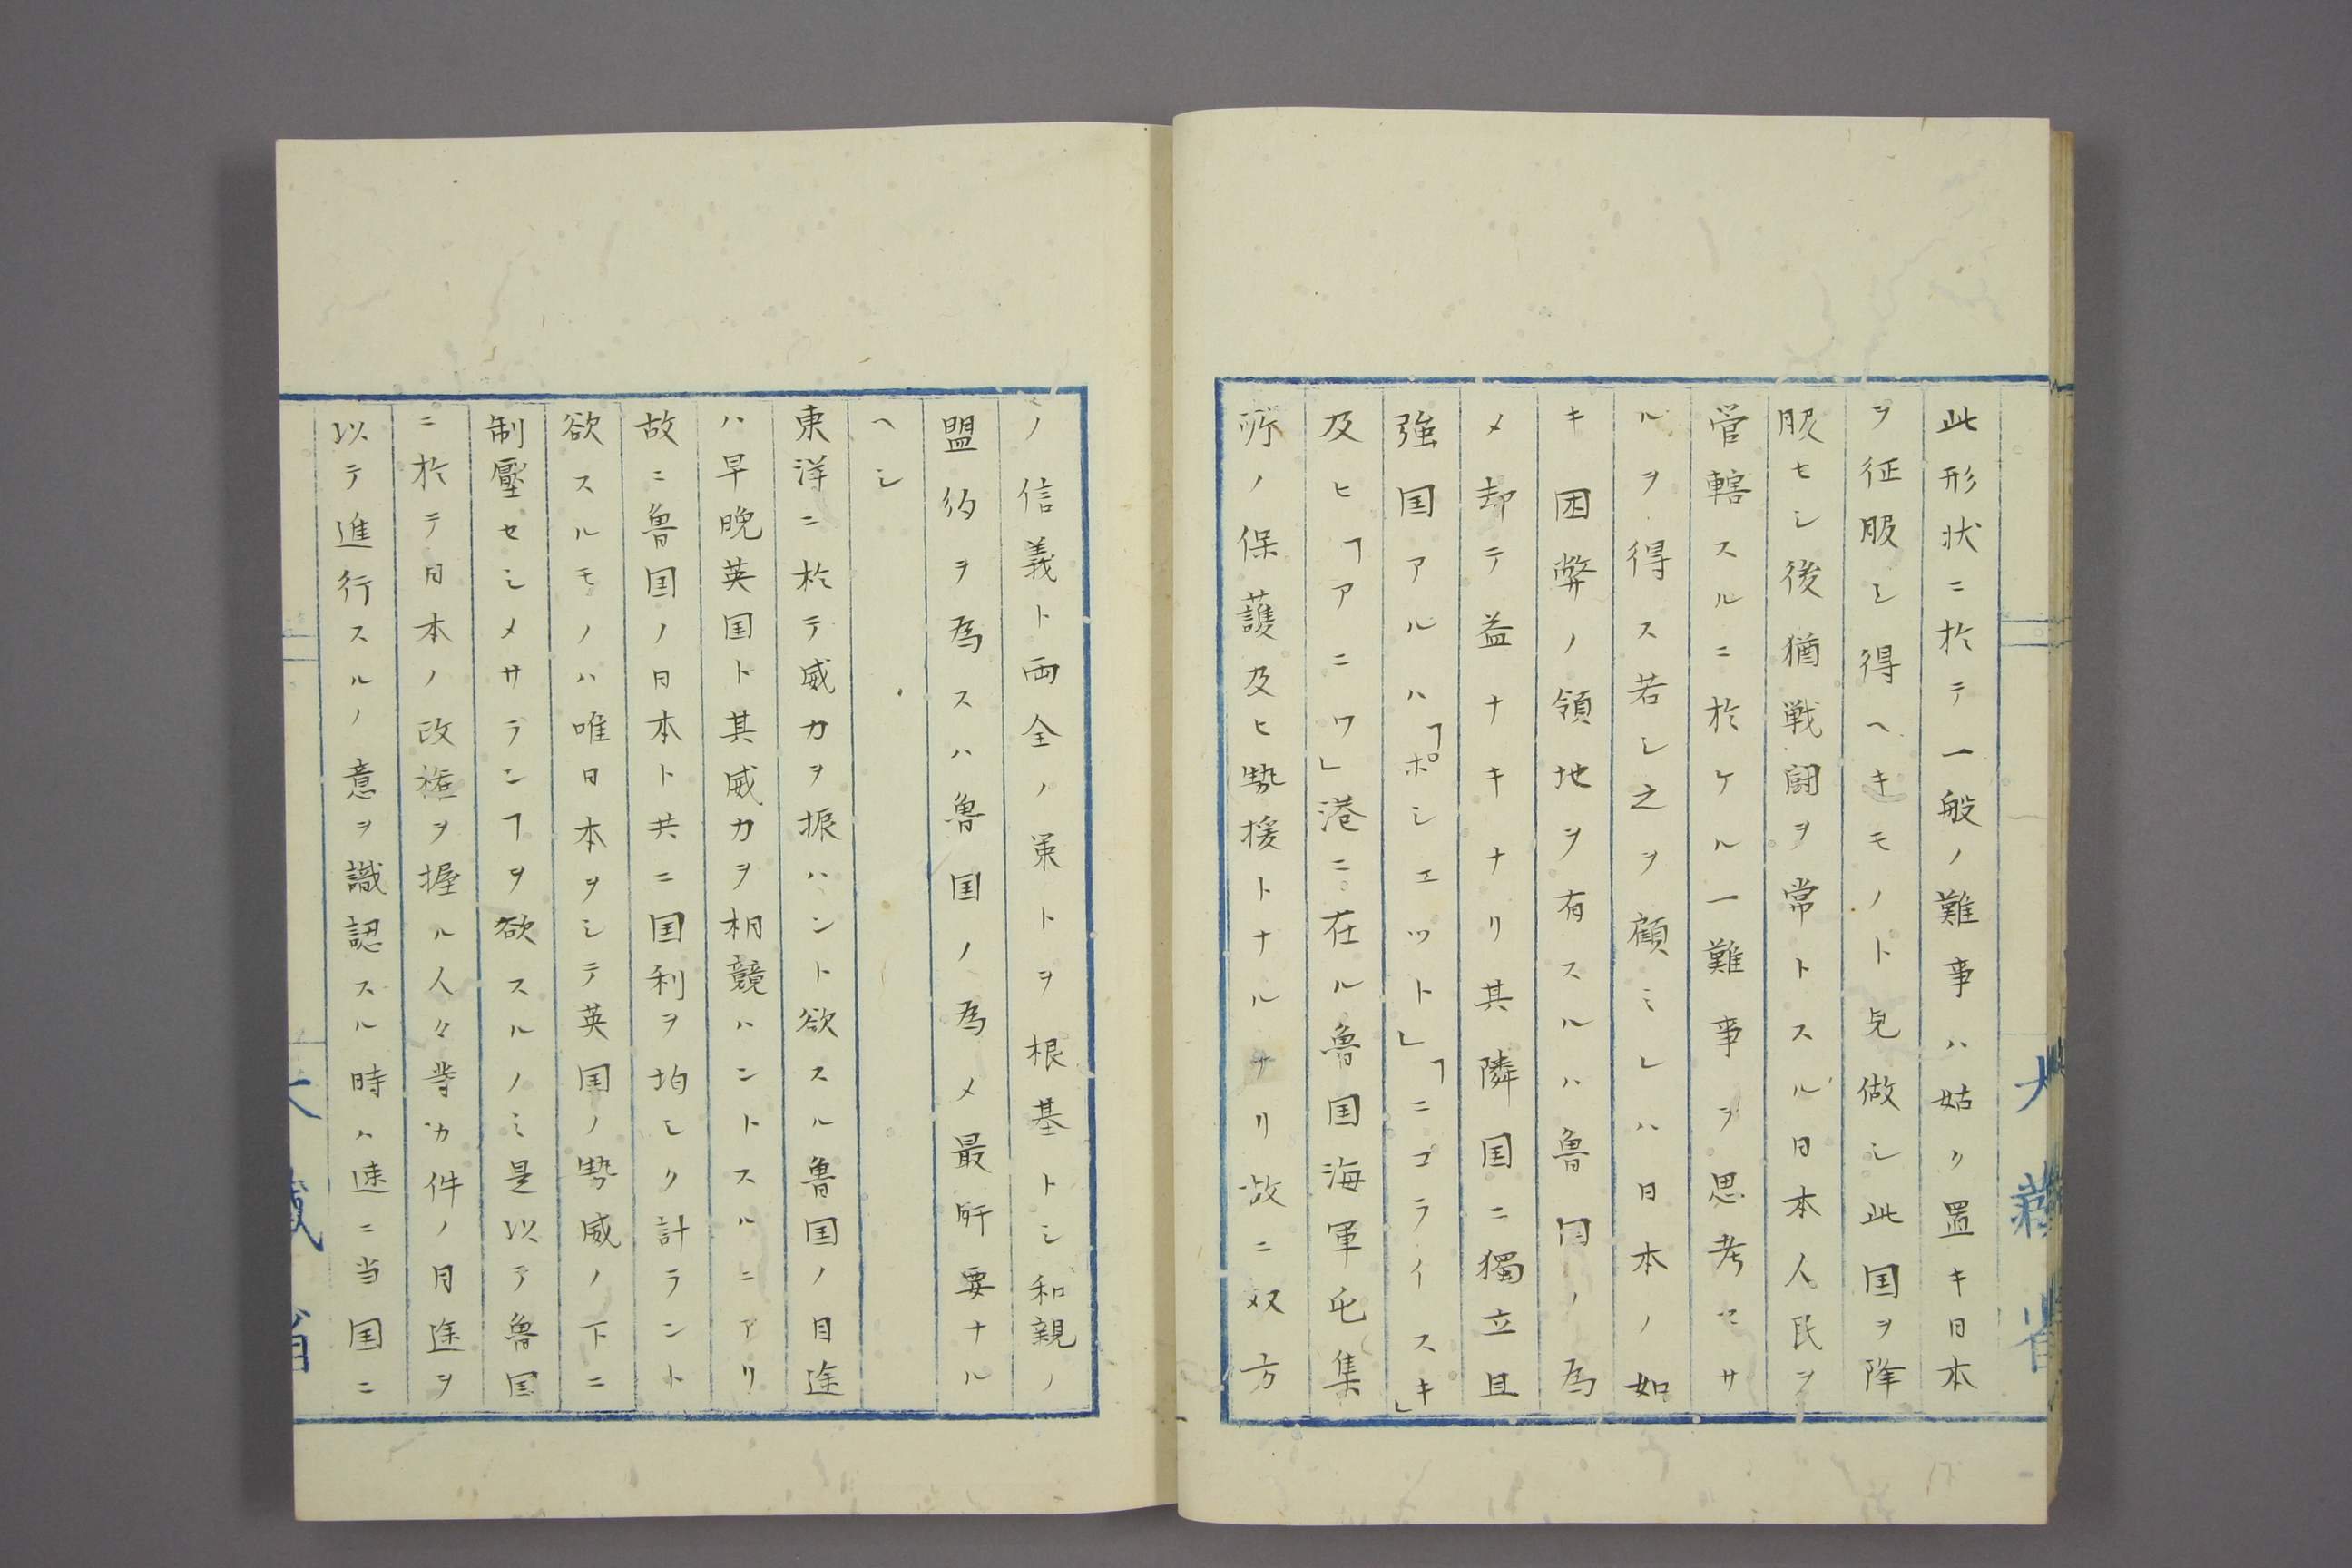 此形状ニ於テ一般ノ難事ハ姑ク置キ日本
ヲ征服シ得ヘキモノト見做シ此国ヲ降
服セシ後猶戦闘ヲ常トスル日本人民ヲ
管轄スルニ於ケル一難事ヲ思考セサ
ルヲ得ス若シ之ヲ顧ミレハ日本ノ如
キ困弊ノ領地ヲ有スルハ魯国ノ為
メ却テ益ナキナリ其隣国ニ獨立且
強国アルハ「ポシエット」「ニコライスキ」
及ヒ「アニワ」港ニ在ル魯国海軍屯集
所ノ保護及ヒ勢援トナルナリ故ニ双方
ノ信義ト両全ノ策トヲ根基トシ和親ノ
盟約ヲ為スハ魯国ノ為メ最所要ナル
ヘシ
東洋ニ於テ威力ヲ振ハント欲スル魯国ノ目途
ハ早晩英国ト其威力ヲ相競ハントスルニアリ
故ニ魯国ノ日本ト共ニ国利ヲ均シク計ラント
欲スルモノハ唯日本ヲシテ英国ノ勢威ノ下ニ
制壓セシメサランヿヲ欲スルノミ是以テ魯国
ニ於テ日本ノ政権ヲ握ル人々等カ件ノ目途ヲ
以テ進行スルノ意ヲ識認スル時ハ速ニ当国ニ
大藏省
大藏省